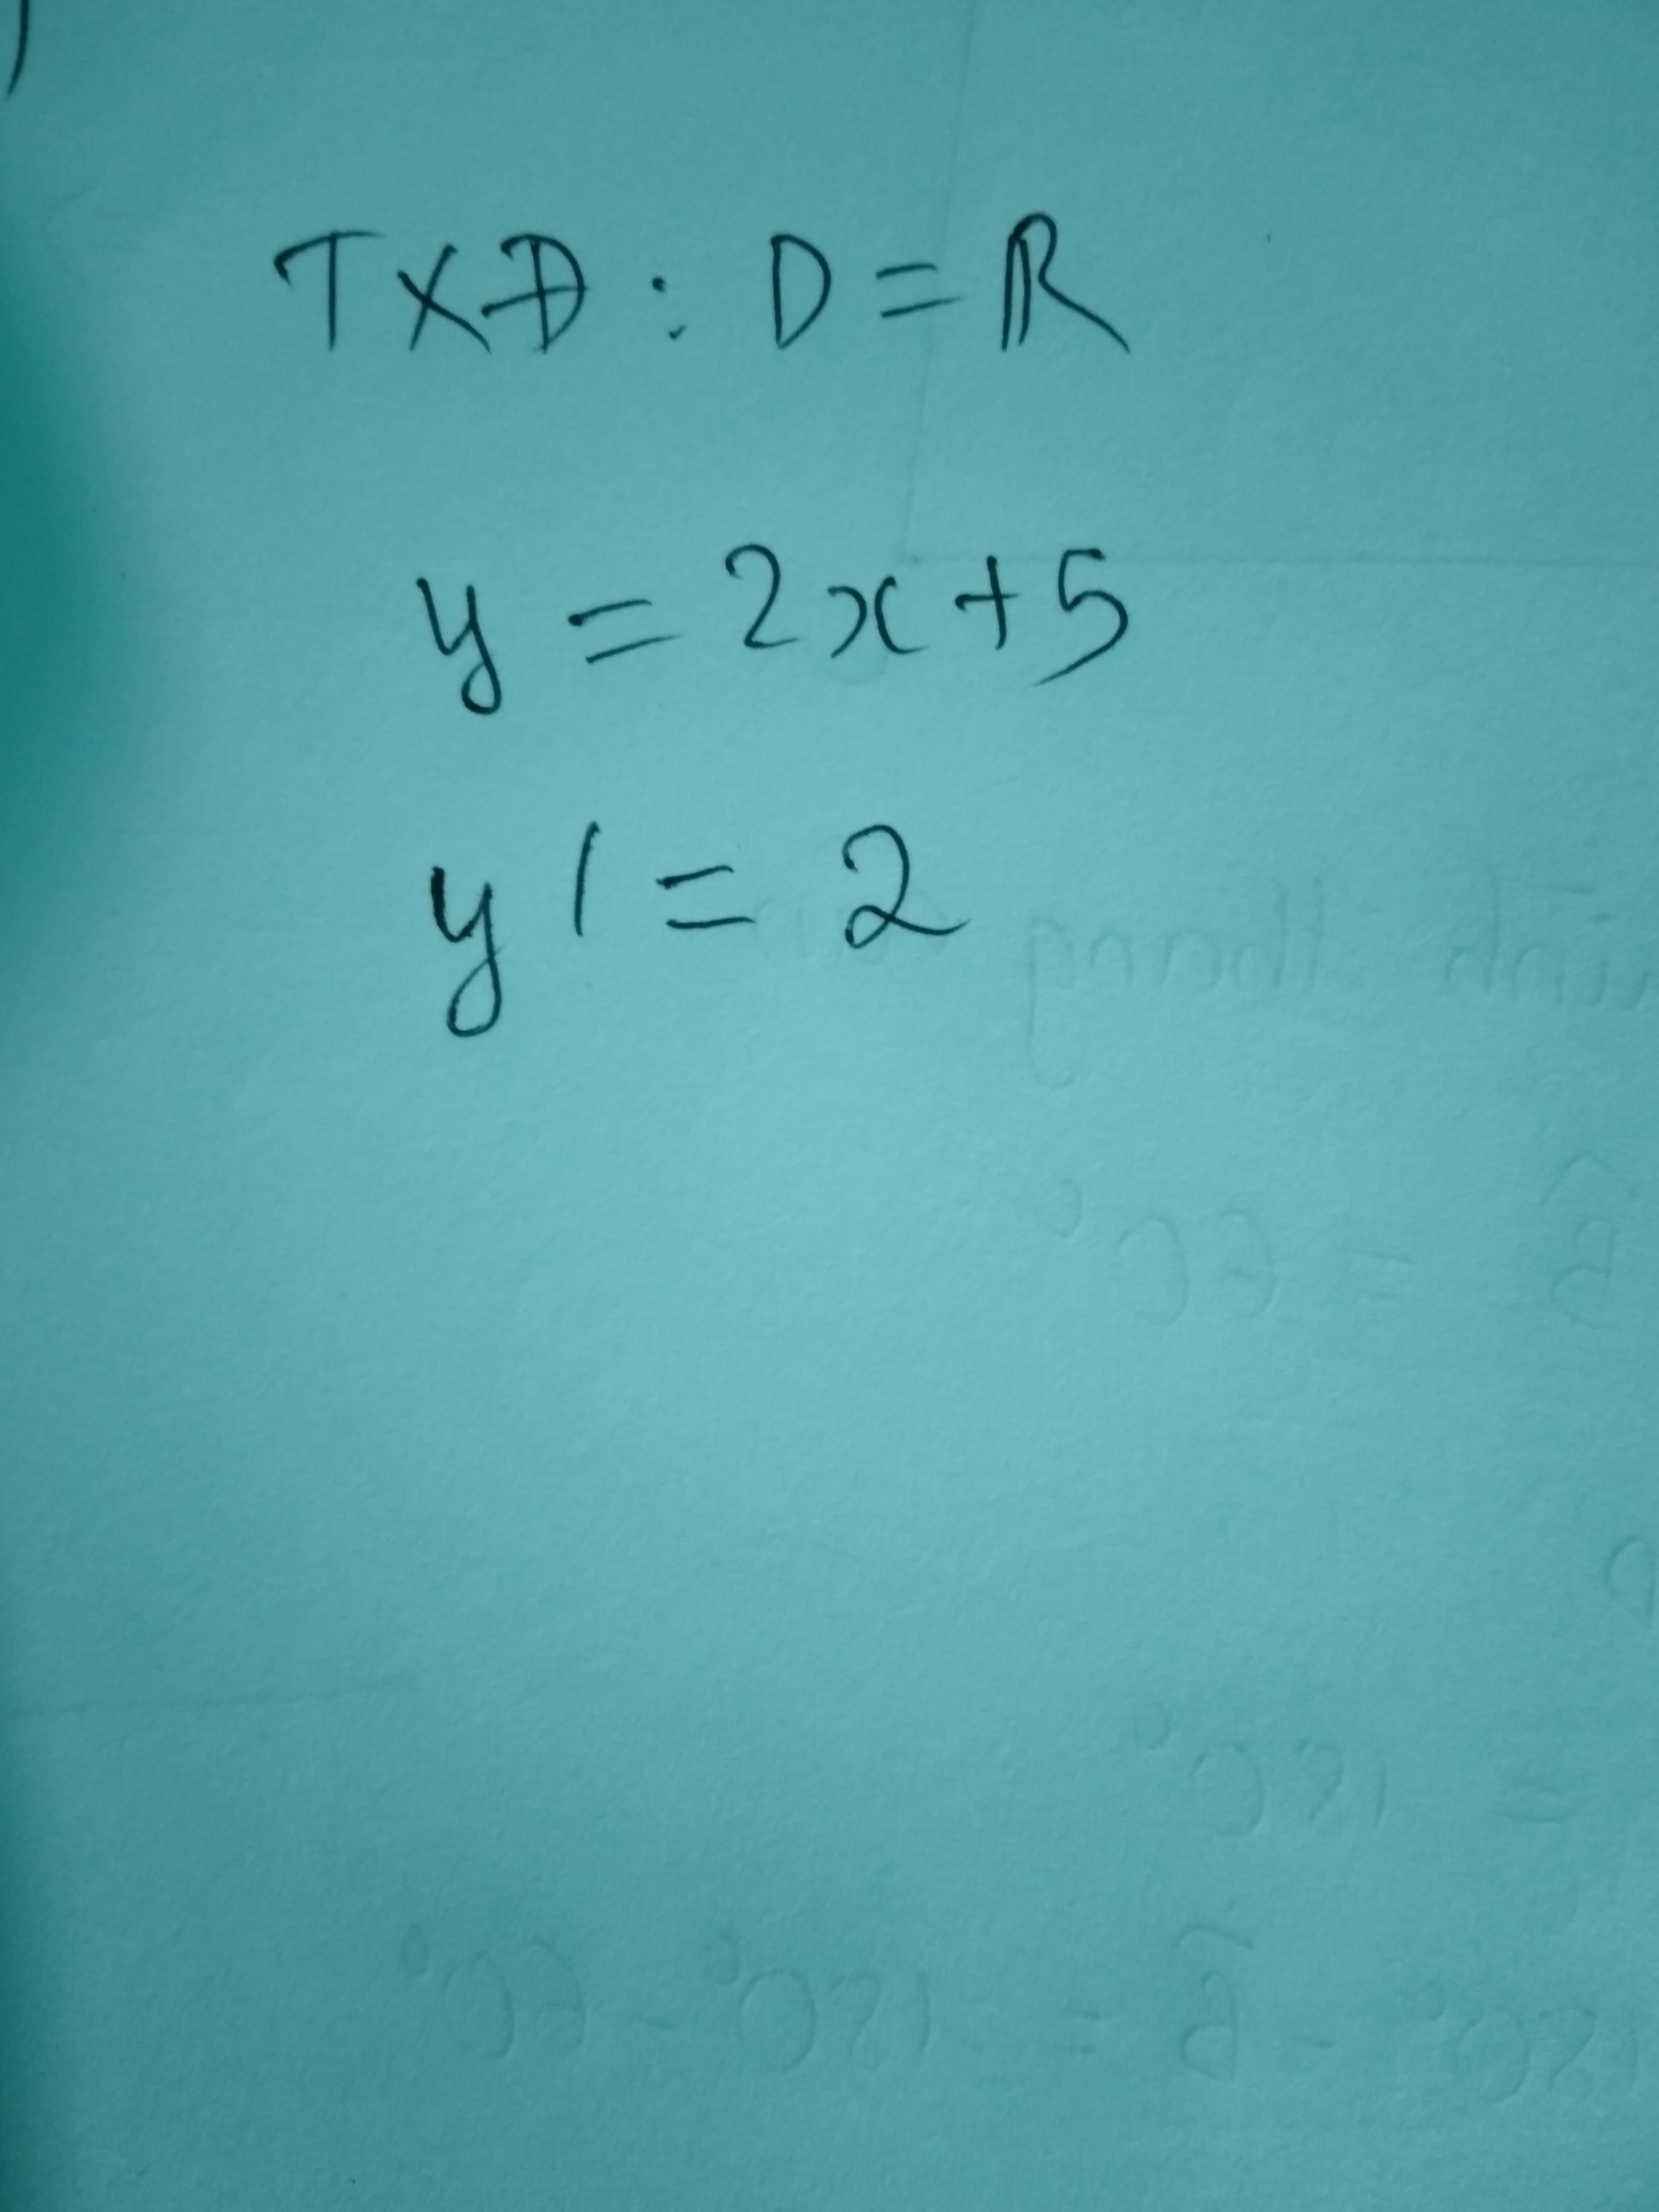 TXĐ: D = ℝ
y = 2x + 5
y' = 2